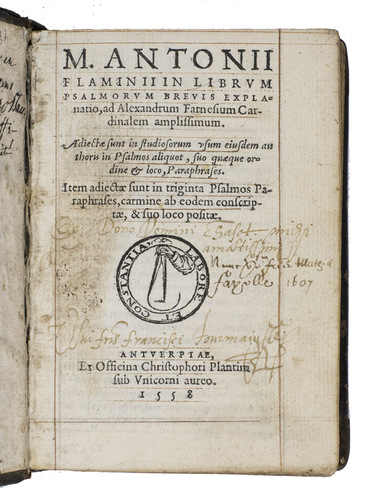 M. ANTONII
FLAMINII IN LIBRVM
PSALMORVM BREVIS EXPLA-
natio, ad Alexandrum Farnesium Car-
dinalem amplissimum.
Adiectæ sunt in studiosorum vsum eiusdem au
thoris in Psalmos aliquot, suo quæque or-
dine & loco, Paraphrases.
Item adiectæ sunt in triginta Psalmos Pa-
raphrases, carmine ab eodem conscrip-
tæ, & suo loco positæ.
Dono
mihi
amantissimi
CONSTANTIA ET LABORE
1607
fris francisci
ANTVERPIAE,
Ex Officina Christophori Plantini
sub Vnicorni aureo.
1558